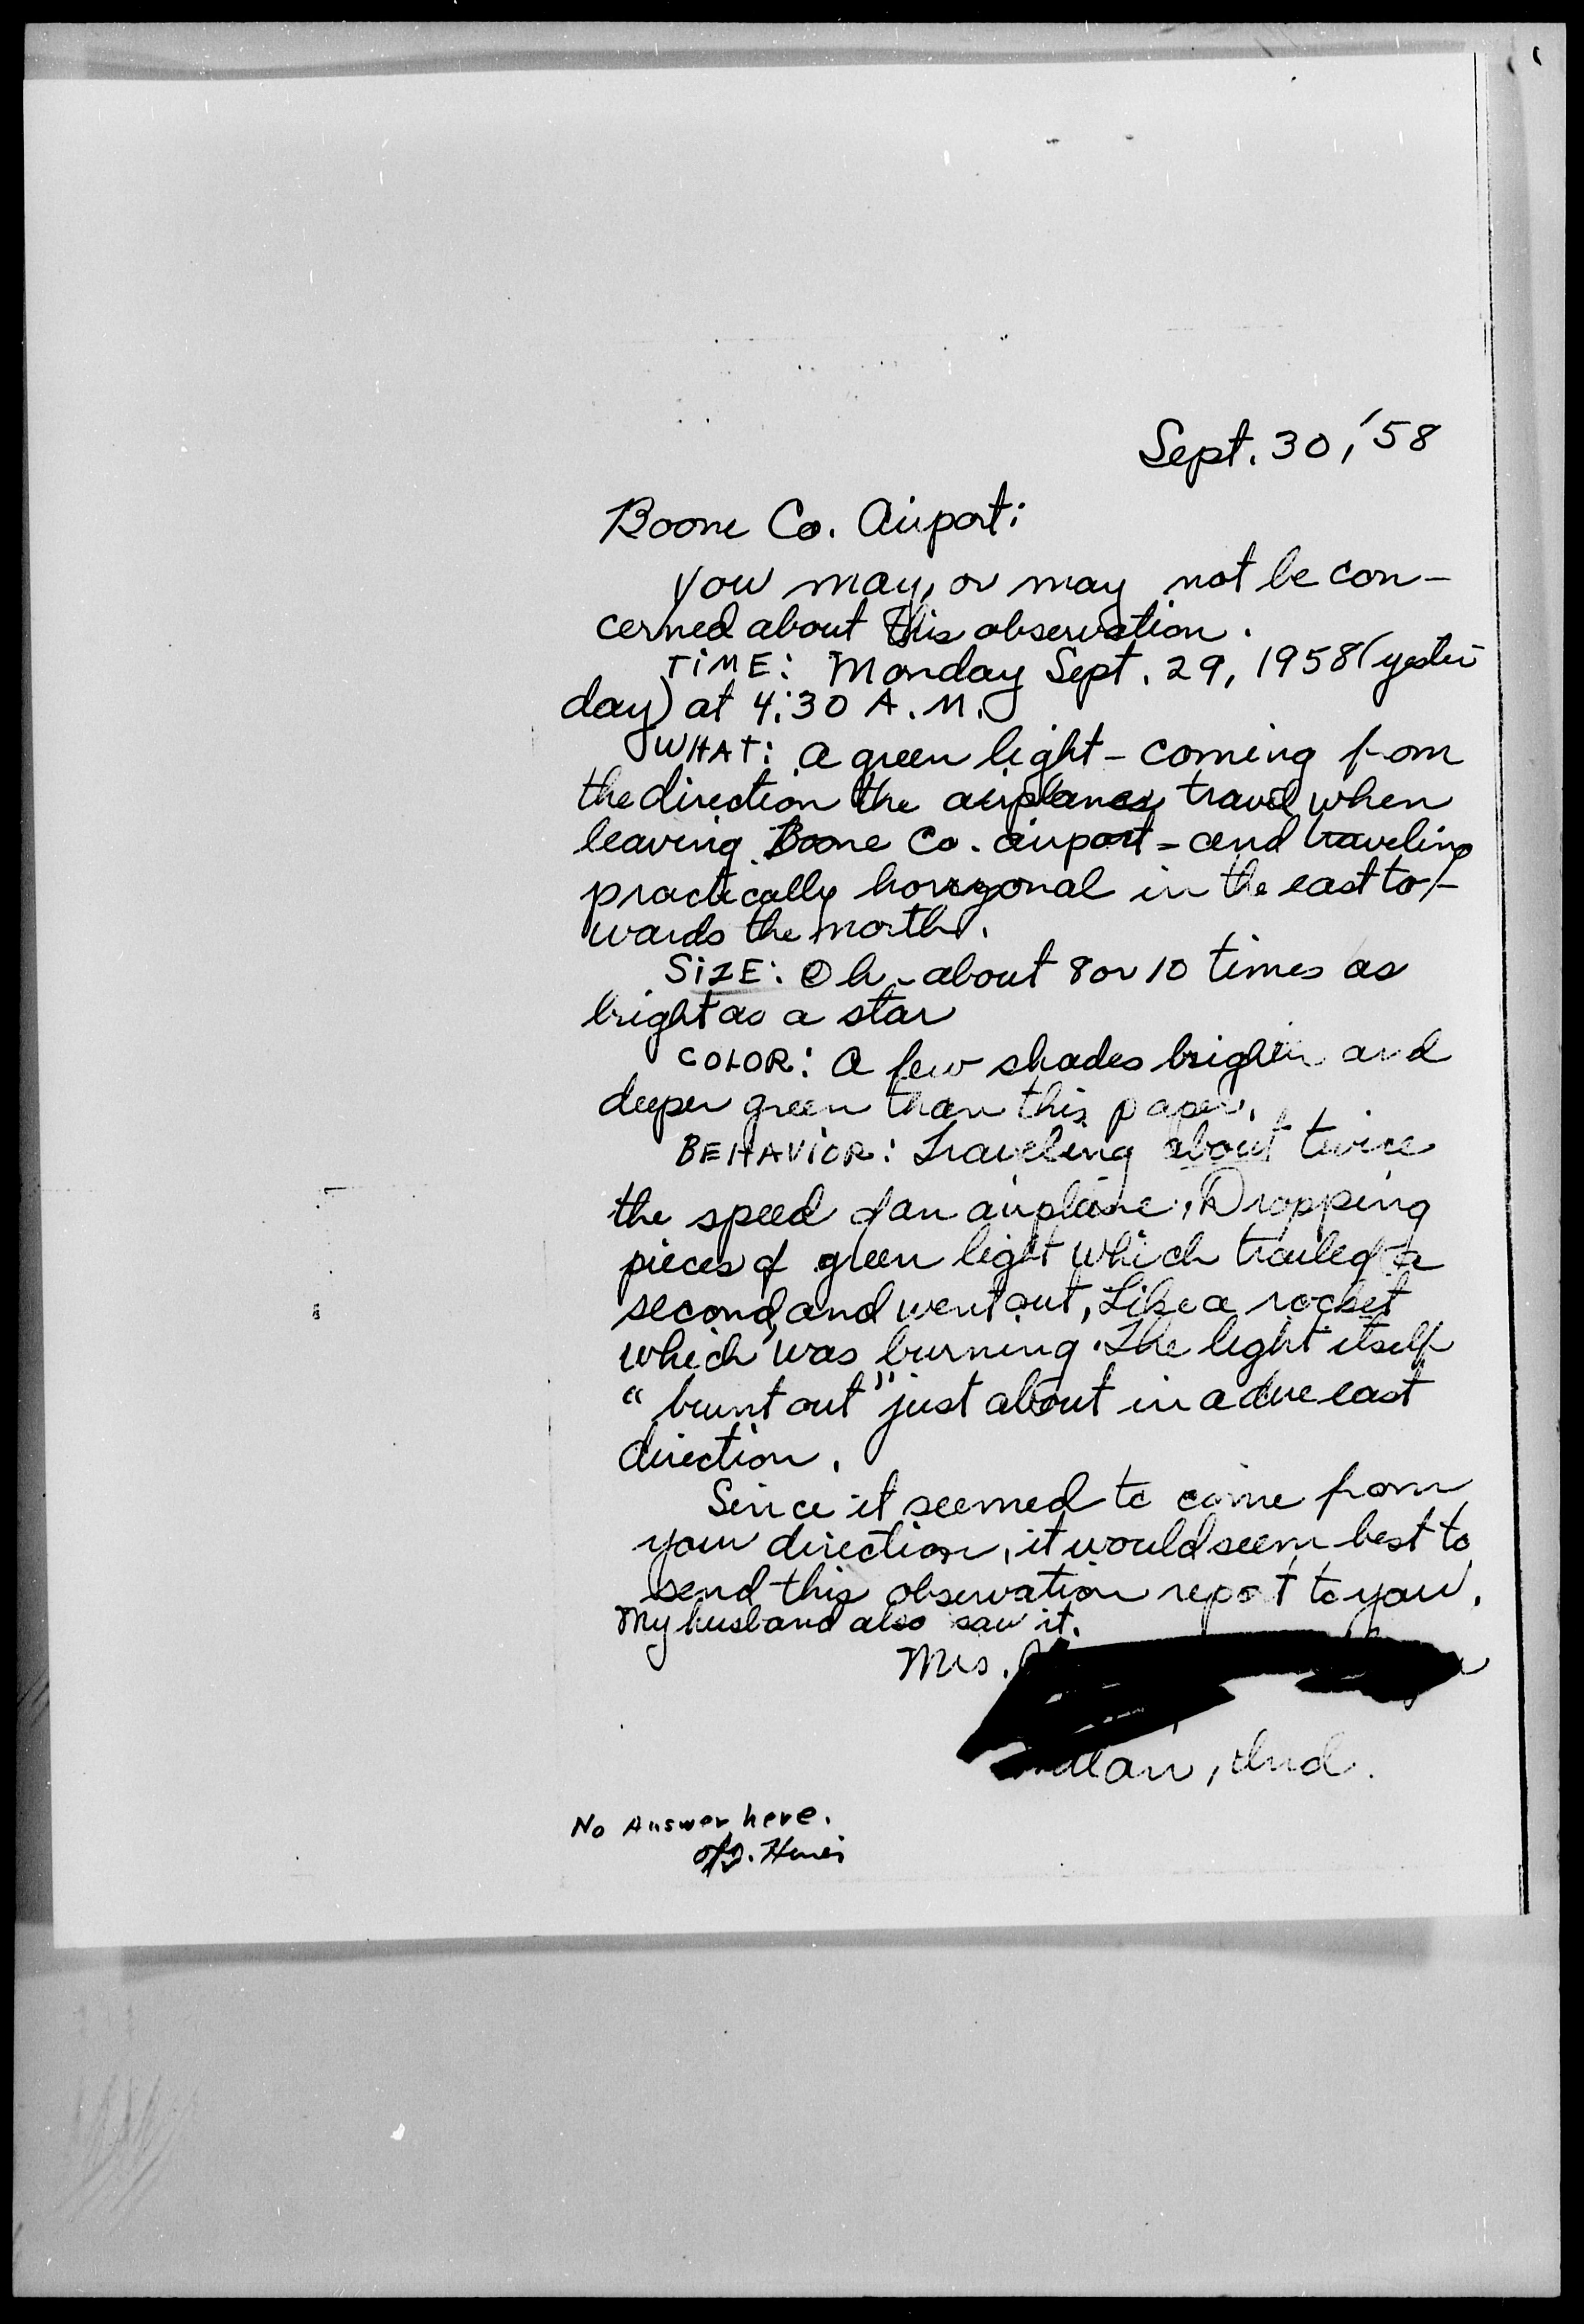 Sept. 30, '58
Boone Co. Airport:
You may, or may not be con-
cerned about this observation.
TIME: Monday Sept. 29, 1958 (yester
day) at 4:30 A.M.
WHAT: A green light - coming from
the direction the airplanes travel when
leaving Boone Co. airport - and traveling
practically horizonal in the east to-
wards the north.
SIZE: Oh - about 8 or 10 times as
bright as a star
COLOR: A few shades brighter and
deeper green than this paper.
BEHAVIOR: Traveling about twice
the speed of an airplane. Dropping
pieces of green light which trailed a
second, and went out, Like a rocket
which was burning. The light itself
"burnt out" just about in a due east
direction.
Since it seemed to come from
your direction, it would seem best to
send this observation report to you.
My husband also saw it.
Mrs.
Ind.
No Answer here.